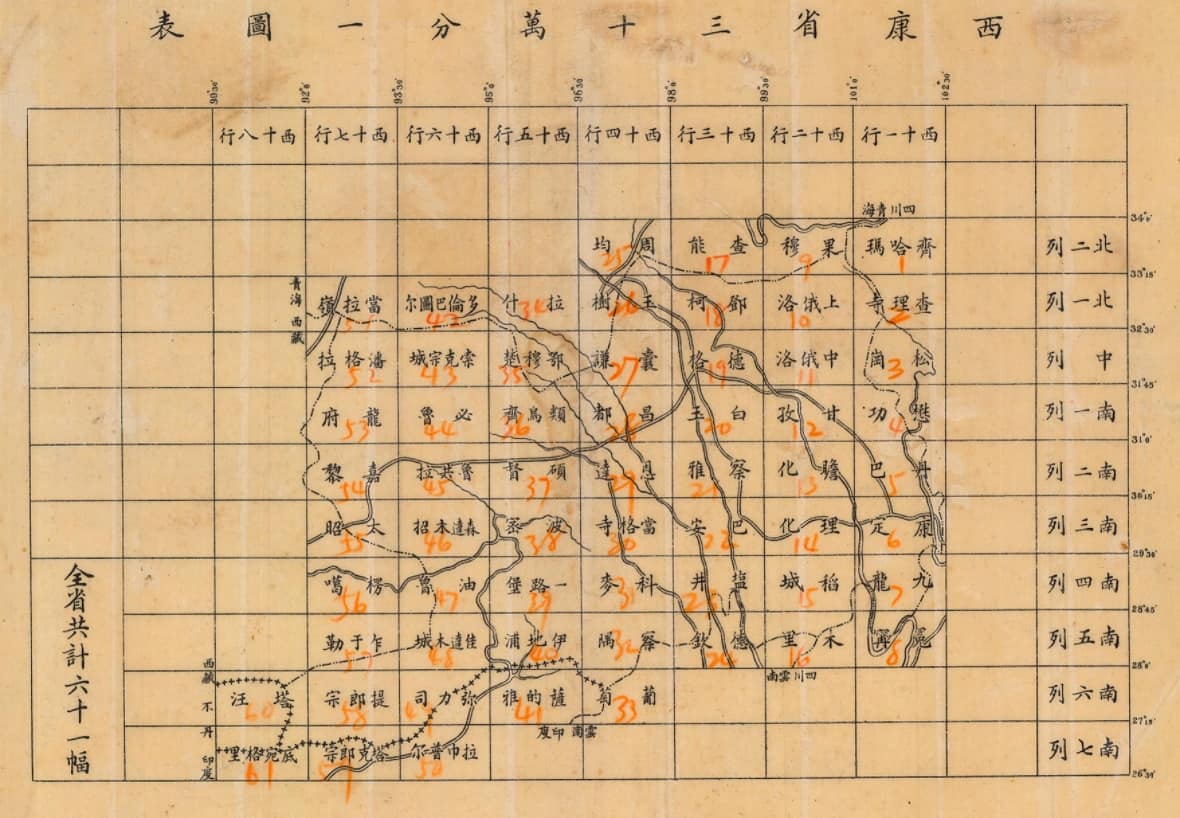 西康省三十萬分一圖表
90°30' 92°0' 93°30' 95°0' 96°30' 98°0' 99°30' 101°0' 102°30'
西十一行 西十二行 西十三行 西十四行 西十五行 西十六行 西十七行 西十八行
四川 青海
34°0'
北二列 齊哈瑪 1 果穆 9 查能 17 周均 25
33°15'
北一列 查理寺 2 上俄洛 10 鄧柯 18 玉樹 26 拉什 34 多倫巴圖尔 42 當拉嶺 51
青海 西藏
32°30'
中列 松崗 3 中俄洛 11 德格 19 囊謙 27 鄂穆楚 35 索克宗城 43 潘格拉 52
31°45'
南一列 懋功 4 甘孜 12 白玉 20 昌都 28 類烏齊 36 必魯 44 龍府 53
31°0'
南二列 丹巴 5 瞻化 13 察雅 21 恩達 29 碩督 37 魯共拉 45 嘉黎 54
30°15'
南三列 康定 6 理化 14 巴安 22 當格寺 30 波密 38 森達木招 46 太昭 55
29°30'
南四列 九龍 7 稻城 15 塩井 23 科麥 31 一路堡 39 油魯 47 楞噶 56
28°45'
南五列 冕寧 8 木里 16 德欽 24 察隅 32 伊地浦 40 佳達木城 48 乍于勒 57
28°0'
四川 雲南
西藏 不丹 印度
南六列 葡萄 33 薩的雅 41 弥力司 49 提郎宗 58 塔汪 60
27°15'
雲南 印度
南七列 拉巾普尔 50 塔克郎宗 59 底宛格里 61
26°30'
全省共計六十一幅